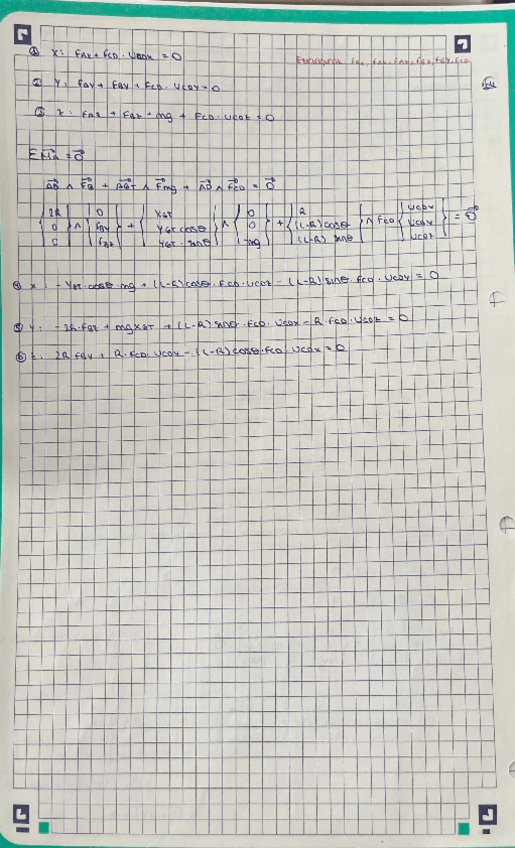 ① X: FAX + FCD · UCDX = 0
Incógnitas FAX, FAY, FAZ, FBX, FBY, FCD
② Y: FAY + FBY + FCD · UCDY = 0
③ Z: FAZ + FBZ - mg + FCD · UCDZ = 0
ΣMA = 0
AB ∧ FB + AGT ∧ Fmg + AD ∧ FCD = 0
{2R 0 0} ∧ {0 FBY FBZ} + {XGT YGT cosθ YGT · sinθ} ∧ {0 0 -mg} + {R (L-R)cosθ (L-R) sinθ} ∧ FCD {UCDX UCDY UCDZ} = 0
④ X: -YGT · cosθ · mg + (L-R)cosθ · FCD · UCDZ - (L-R)sinθ · FCD · UCDY = 0
⑤ Y: -2R · FBZ + mgXGT + (L-R)sinθ · FCD · UCDX - R · FCD · UCDZ = 0
⑥ Z: 2R · FBY + R · FCD · UCDY - (L-R)cosθ · FCD · UCDX = 0